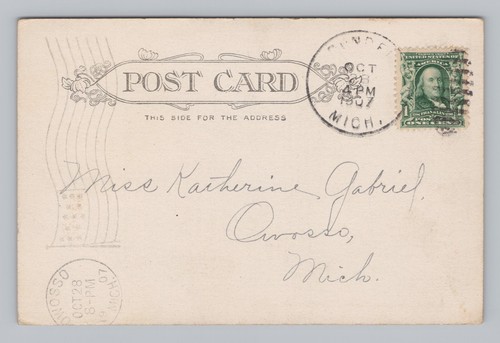 POST CARD
THIS SIDE FOR THE ADDRESS
OCT
28
4 PM
1907
MICH.
1
ONE CENT
Miss Katherine Gabriel,
Owosso,
Mich.
OWOSSO
OCT 28
8-PM
07
MICH